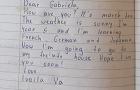 Dear Gabriela,
How are you? It's march here
The weather is sunny. I'm
year 6 and I'm learning
French, German and
Now I'm going to go to
my friends house. Hope I'm
you soon!
Love